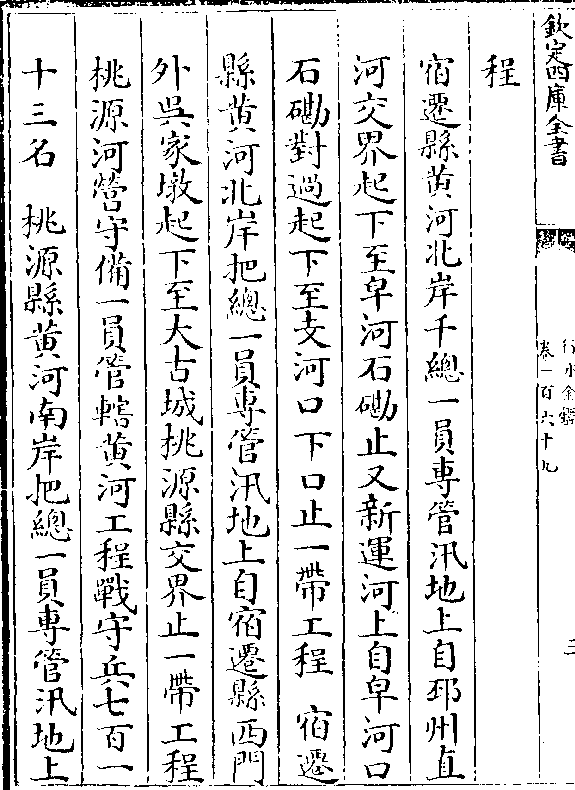 欽定四庫全書
行水金鑑
卷一百六十九
三
程
宿遷縣黄河北岸千總一員專管汛地上自邳州直
河交界起下至皁河石磡止又新運河上自皁河口
石磡對過起下至支河口下口止一帶工程　宿遷
縣黄河北岸把總一員專管汛地上自宿遷縣西門
外吳家墩起下至大古城桃源縣交界止一帶工程
桃源河營守備一員管轄黄河工程戰守兵七百一
十三名　桃源縣黄河南岸把總一員專管汛地上